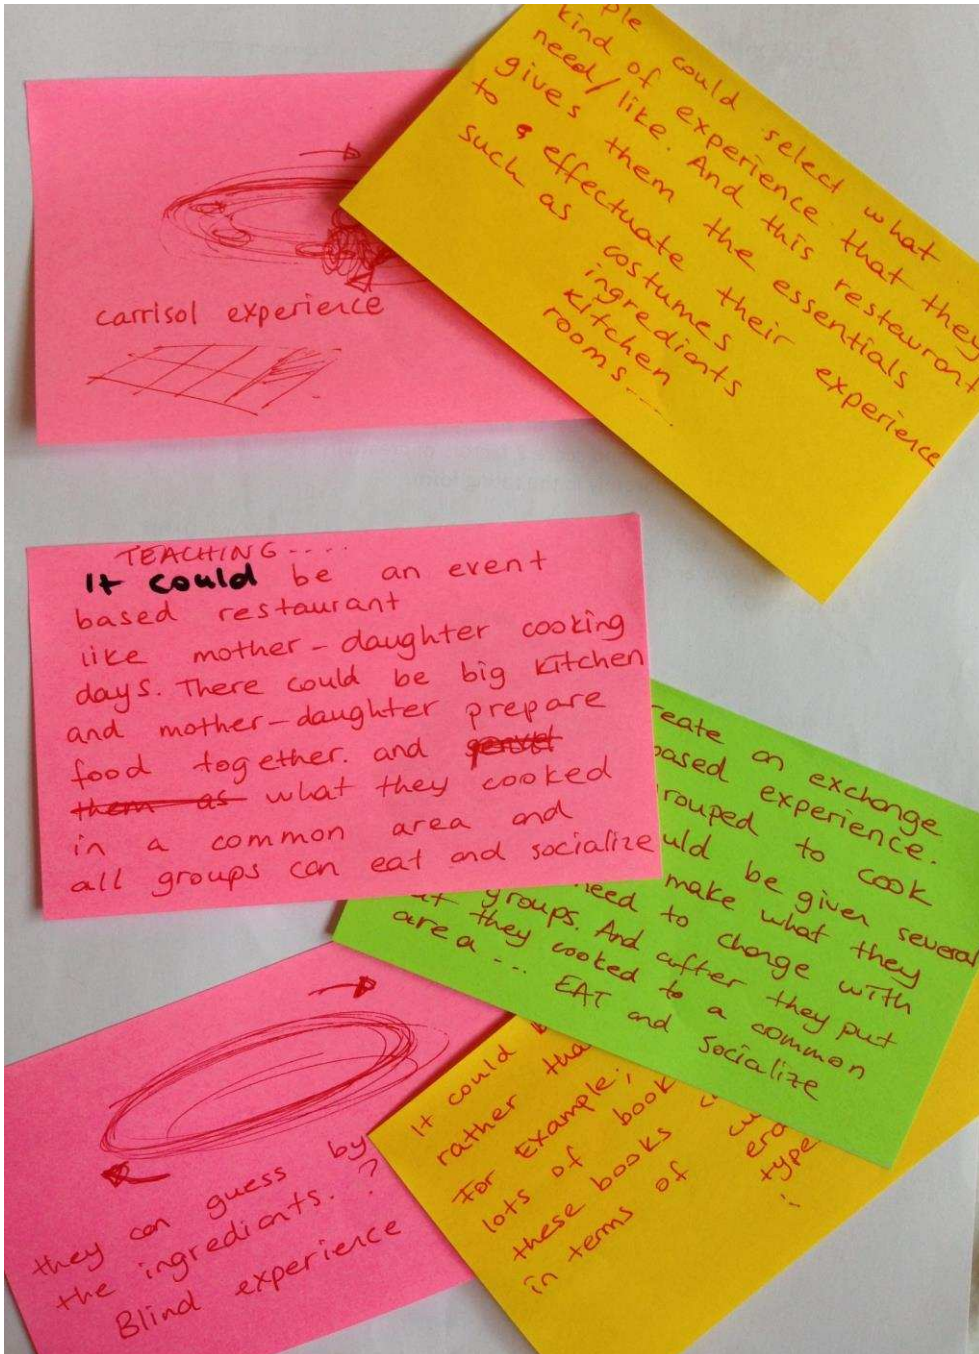 carrisol experience
could select what
kind of experience that they
need/like. And this restaurant
gives them the essentials
to effectuate their experience
such as costumes
ingrediants
kitchen
rooms....
TEACHING....
It could be an event
based restaurant
like mother-daughter cooking
days. There could be big kitchen
and mother-daughter prepare
food together. and
them as what they cooked
in a common area and
all groups can eat and socialize
an exchange
based experience.
to cook
be given several
make what they
need to change with
groups. And after they put
they cooked to a common
area... EAT and socialize
they can guess by
the ingrediants. ?
Blind experience
It could
rather
For Example;
lots of book
these books
in terms of
type